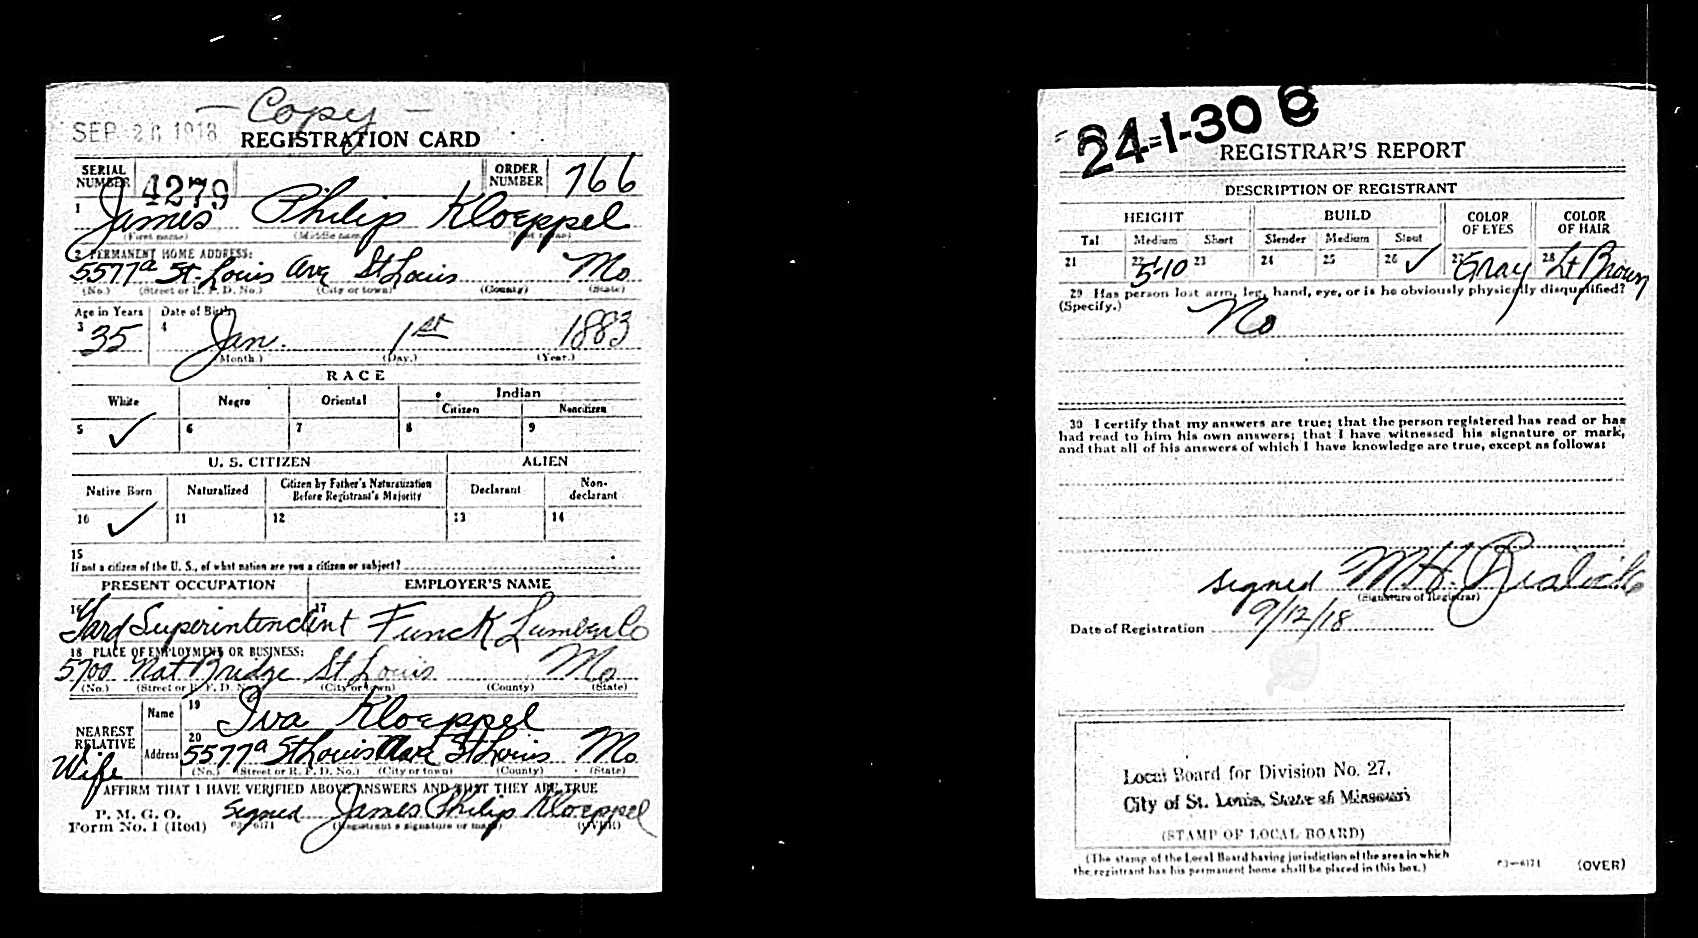 — Copy —
SEP 26 1918 REGISTRATION CARD
SERIAL NUMBER 4279 ORDER NUMBER 766
1 James Philip Kloeppel
(First name) (Middle name) (Last name)
2 PERMANENT HOME ADDRESS:
5577a St. Louis Ave St Louis Mo
(No.) (Street or R. F. D. No.) (City or town) (County) (State)
Age in Years Date of Birth
3 35 4 Jan. 1st 1883
(Month.) (Day.) (Year.)
RACE
White Negro Oriental Indian
Citizen Noncitizen
5 ✓ 6 7 8 9
U. S. CITIZEN ALIEN
Native Born Naturalized Citizen by Father's Naturalization Before Registrant's Majority Declarant Non-declarant
10 ✓ 11 12 13 14
15
If not a citizen of the U. S., of what nation are you a citizen or subject?
PRESENT OCCUPATION EMPLOYER'S NAME
16 Yard Superintendent 17 Funck Lumber Co
18 PLACE OF EMPLOYMENT OR BUSINESS:
5700 Nat Bridge St Louis Mo
(No.) (Street or R. F. D. No.) (City or town) (County) (State)
NEAREST RELATIVE Name 19 Iva Kloeppel
Wife Address 20 5577a St Louis Ave St Louis Mo
(No.) (Street or R. F. D. No.) (City or town) (County) (State)
I AFFIRM THAT I HAVE VERIFIED ABOVE ANSWERS AND THAT THEY ARE TRUE
P. M. G. O.
Form No. 1 (Red) 03-6171 Signed James Philip Kloeppel
(Registrant's signature or mark) (OVER)
24-1-30 B
REGISTRAR'S REPORT
DESCRIPTION OF REGISTRANT
HEIGHT BUILD COLOR OF EYES COLOR OF HAIR
Tall Medium Short Slender Medium Stout
21 22 5'-10 23 24 25 26 ✓ 27 Gray 28 Lt Brown
29 Has person lost arm, leg, hand, eye, or is he obviously physically disqualified?
(Specify.) No
30 I certify that my answers are true; that the person registered has read or has
had read to him his own answers; that I have witnessed his signature or mark,
and that all of his answers of which I have knowledge are true, except as follows:
Signed M. H.
(Signature of Registrar)
Date of Registration 9/12/18
Local Board for Division No. 27,
City of St. Louis, State of Missouri
(STAMP OF LOCAL BOARD)
(The stamp of the Local Board having jurisdiction of the area in which
the registrant has his permanent home shall be placed in this box.)
03—6171 (OVER)